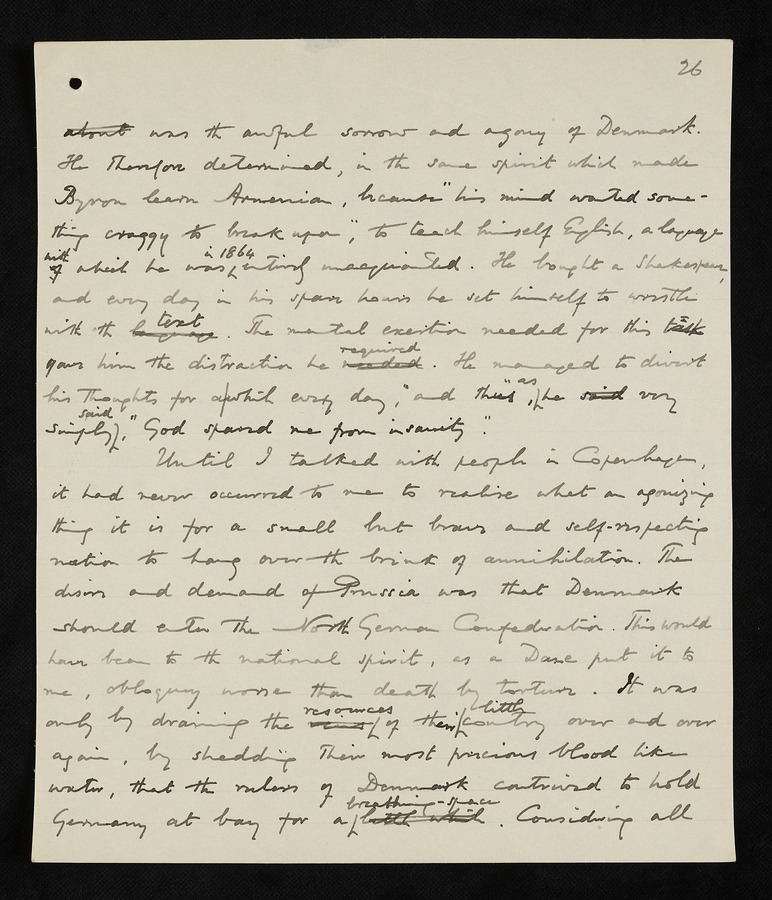 26
about was the awful sorrow and agony of Denmark.
He therefore determined, in the same spirit which made
Byron learn Armenian, because "his mind wanted some-
thing craggy to break upon", to teach himself English, a language
with of which he was, in 1864 entirely unacquainted. He bought a Shakespeare,
and every day in his spare hours he set himself to wrestle
with the language text. The mental exertion needed for this task
gave him the distraction he needed required. He managed to divert
his thoughts for a while every day, and thus, as he said very
simply said, "God spared me from insanity".
Until I talked with people in Copenhagen,
it had never occurred to me to realise what an agonizing
thing it is for a small but brave and self-respecting
nation to hang over the brink of annihilation. The
desire and demand of Prussia was that Denmark
should enter the North German Confederation. This would
have been to the national spirit, as a Dane put it to
me, obloquy worse than death by torture. It was
only by draining the veins resources of their little country over and over
again, by shedding their most precious blood like
water, that the rulers of Denmark contrived to hold
Germany at bay for a little while breathing-space. Considering all